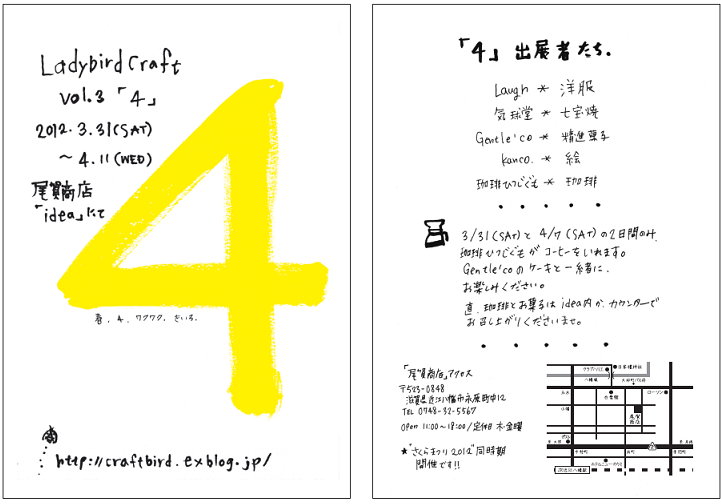 Ladybird Craft
vol.3 「4」
2012.3.31(SAT)
～4.11(WED)
尾賀商店
「idea」にて
4
春、4、ワクワク、きいろ。
http://craftbird.exblog.jp/
「4」出展者たち.
Laugh * 洋服
気球堂 * 七宝焼
Gentle'co * 精進菓子
kanco. * 絵
珈琲ひつじぐも * 珈琲
3/31(SAT)と 4/7(SAT)の2日間のみ、
珈琲ひつじぐもが コーヒーをいれます。
Gentle'coの ケーキと一緒に、
お楽しみください。
直、珈琲とお菓子は idea内か、カウンターで
お召し上がりくださいませ。
「尾賀商店」アクセス
〒523-0848
滋賀県近江八幡市永原町中12
TEL 0748-32-5567
open 11:00～18:00/定休日 木・金曜
★"さくらまつり2012"同時期
開催です!!
日牟禮神社
ローソン
尾賀
商店
JR近江八幡駅